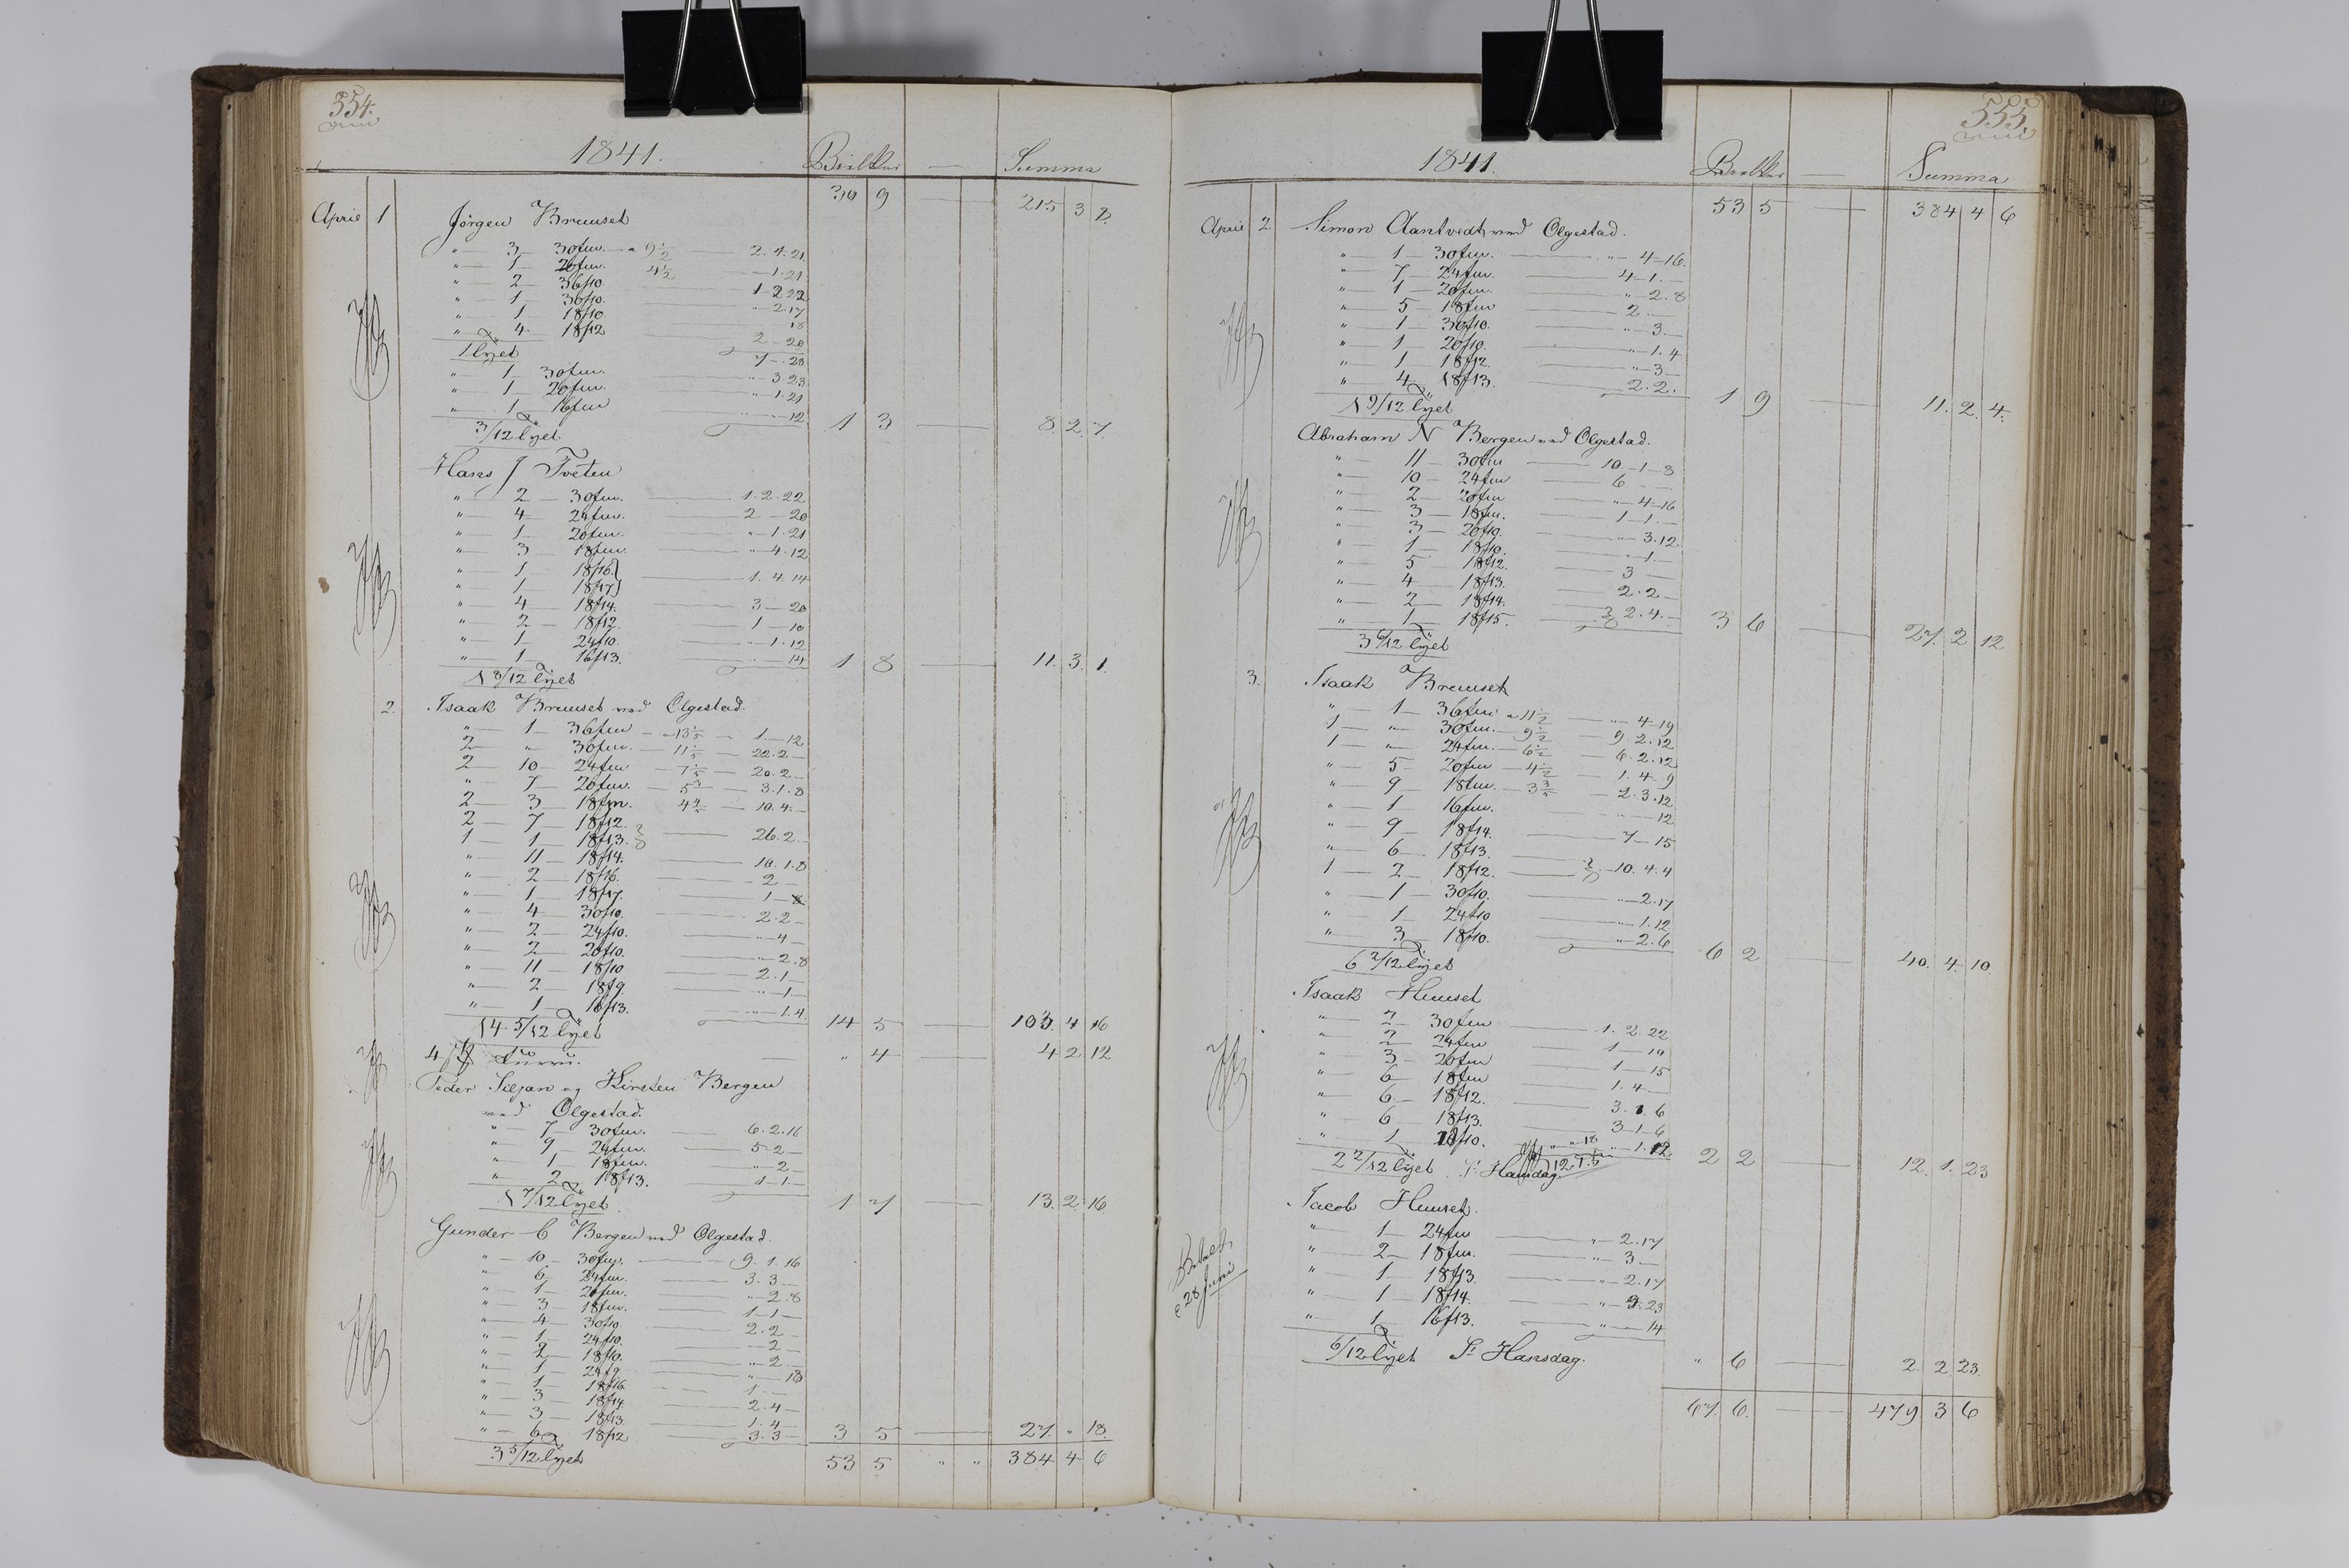 554.
1841. Summa
30 9 — 215 3 8.
April 1 Jörgen Bruuset
" — 3 — 30fm. — a 9 1/2 — 2. 4. 21
" — 1 — 20fm. 4 1/2 — " 1. 21
" — 2 — 36f10. 1 — 2 22
" — 1 — 30f10. — " 2. 17
" — 1 — 18f10. — 18
" — 4 — 18f12 — 2 — 20
1 Tylt — 7 — 23
" — 1 — 30fm. — " 3. 23
" — 1 — 20fm. — " 1. 21
" — 1 — 16fm — " 12
3/12 Tylt 1 3 — 8. 2 7.
Hans J Tveten
" — 2 — 30fm. — 1. 2. 22
" — 4 — 24fm. — 2 — 20
" — 1 — 20fm. — " 1. 21
" — 3 — 18fm. — " 4. 12
" — 1 — 18f16.}
" — 1 — 18f17} — 1. 4. 14
" — 4 — 18f14. — 3 — 20
" — 2 — 18f12. — 1 — 10
" — 1 — 24f10. — " 1. 12
" — 1 — 16f13. — " 14
1 8/12 Tylt 1 8 — 11. 3. 1.
2. Isaak Bruuset ved Olgestad.
" — 1 — 36fm — a 13 1/5 — 1 — 12
2 — " 30fm. — 11 1/5 — 22. 2 —
2 — 10 — 24fm — 7 1/5 — 20. 2 —
" — 7 — 20fm. — 5 3/5 — 3. 1. 8
2 — 3 — 18fm. 4 4/5 — 10. 4. —
2 — 7 — 18f12.
1 — 1 — 18f13. — 26. 2 —
" — 11 — 18f14. — 10. 1. 8
" — 2 — 18f16. — 2 —
" — 1 — 18f17. — 1 — 8
" — 4 — 30f10. — 2. 2 —
" — 2 — 24f10. — " 4 —
" — 2 — 20f10. — " 2. 8
" — 11 — 18f10 — 2. 1 —
" — 2 — 18f9. — " 1 —
" — 1 — 16f13. — " 1. 4
14 5/12 Tylt 14 5 — 103. 4 16
" 4 — 4 2 12
Peder Siljan og Kirsten Bergen
ved Olgestad.
" — 7 — 30fm. — 6. 2. 16
" — 9 — 24fm. — 5 2 —
" — 1 — 18fm. — " 2 —
" — 2 — 18f13. — 1 1 —
1 7/12 Tylt 1 7 — 13. 2 16
Gunder C Bergen ved Olgestad.
" — 10 — 30fm. — 9. 1. 16
" — 6 — 24fm. — 3. 3 —
" — 1 — 20fm. — " 2. 8
" — 3 — 18fm. — 1 1 —
" — 4 — 30f10. — 2. 2 —
" — 1 — 24f10. — " 2 —
" — 2 — 18f10. — " 2 —
" — 1 — 24f9. — " 18
" — 1 — 18f16 — 1. —
" — 3 — 18f14 — 2. 4 —
" — 3 — 18f13. — 1. 4 —
" — 6 — 18f12 — 3. 3 — 3 5 — 27. " 18.
3 5/12 Tylt 53 5 " " 384 4 6
555.
1841. Summa
53 5 — 384 4 6
April 2. Simon Aantvedt ved Olgestad.
" — 1 — 30fm. — " 4 — 16.
" — 7 — 24fm. — 4 — 1. —
" — 1 — 20fm. — " 2. 8
" — 5 — 18fm — 2 —
" — 1 — 30f10. — " 3. —
" — 1 — 20f10. — " 1. 4
" — 1 — 18f12. — " 3 —
" — 4 — 18f13. — 2. 2. —
1 9/12 Tylt 1 9 — 11. 2. 4.
Abraham N Bergen ved Olgestad.
" — 11 — 30fm — 10. — 1 — 8
" — 10 — 24fm — 6 —
" — 2 — 20fm — " 4 — 16
" — 3 — 18fm. — 1 — 1. —
" — 3 — 20f10. — " 3. 12.
" — 1 — 18f10. — " 1. —
" — 5 — 18f12. — 3 —
" — 4 — 18f13. — 2. 2 —
" — 2 — 18f14.
" — 1 — 18f15. — 2. 4. — 3 6
3 6/12 Tylt — 27. 2 12
3. Isaak Bruuset
" — 1 — 36fm — a 11 1/2 — " 4 — 19
1 — " 30fm. — 9 1/2 — 9 2. 12
1 — " 24fm. — 6 1/2 — 6. 2. 12
" — 5 — 20fm — 4 1/2 — 1. 4. 9
" — 9 — 18fm. — 3 3/5 — 2. 3. 12
" — 1 — 16fm. — " 12
" — 9 — 18f14. — 7 — 15
" — 6 — 18f13.
1 — 2 — 18f12. — 10. 4. 4
" — 1 — 30f10. — " 2. 17
" — 1 — 24f10 — " 1. 12
" — 3 — 18f10. — " 2. 6
6 2/12 Tylt 6 2 — 40. 4. 10.
Isaak Huuset
" — 2 — 30fm — 1. 2. 22
" — 2 — 24fm — 1 — 19
" — 3 — 20fm — 1 — 15
" — 6 — 18fm — 1. 4 —
" — 6 — 18f12. — 3. 1. 6
" — 6 — 18f13. — 3 — 1 — 6
" — 1 — 18f10. — " 1. 12
2 2/12 Tylt St Hansdag. 2 2 — 12. 1. 23
Jacob Huuset.
" — 1 — 24fm — " 2. 17
" — 2 — 18fm. — " 3 —
" — 1 — 18f13. — " 2. 17
" — 1 — 18f14. — " 3. 23
" — 1 — 16f13. — " 14
28 Juni
6/12 Tylt St Hansdag. " 6 — 2. 2 23.
67. 6. — 479 3 6